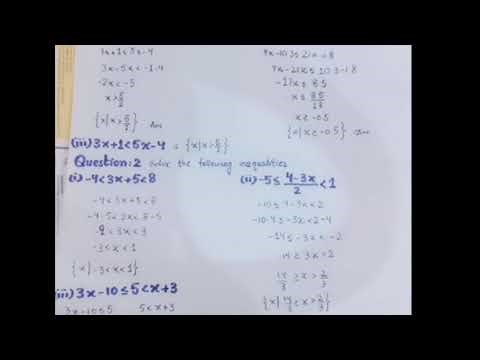 3x+1<5x-4
3x-5x<-1-4
-2x<-5
x>5/2
{x|x>5/2} Ans
(iii) 3x+1<5x-4 = {x|x>5/2}
x≤
x≥-0.5
{x|x≥-0.5} Ans
Question:2 Solve the following inequalities
(i) -4<3x+5<8
-4<3x+5<8
-4-5<3x<8-5
-3<x<1
{x|-3<x<1}
(ii) -5≤(4-3x)/2<1
-10≤4-3x<2
-10-4≤-3x<2-4
-14≤-3x<-2
14≥3x>2
14/3≥x>2/3
{x|14/3≥x>2/3}
(iii) 3x-10≤5<x+3
3x-10≤5 5<x+3